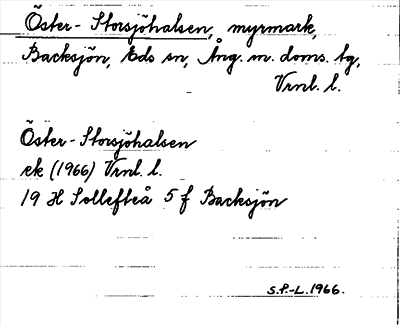 Öster-Storsjöhalsen, myrmark,
Backsjön, Eds sn, Ång. m. doms. tg,
Vrnl. l.
Öster-Storsjöhalsen
ek (1966) Vrnl. l.
19 H Sollefteå 5 f Backsjön
S.P.-L. 1966.